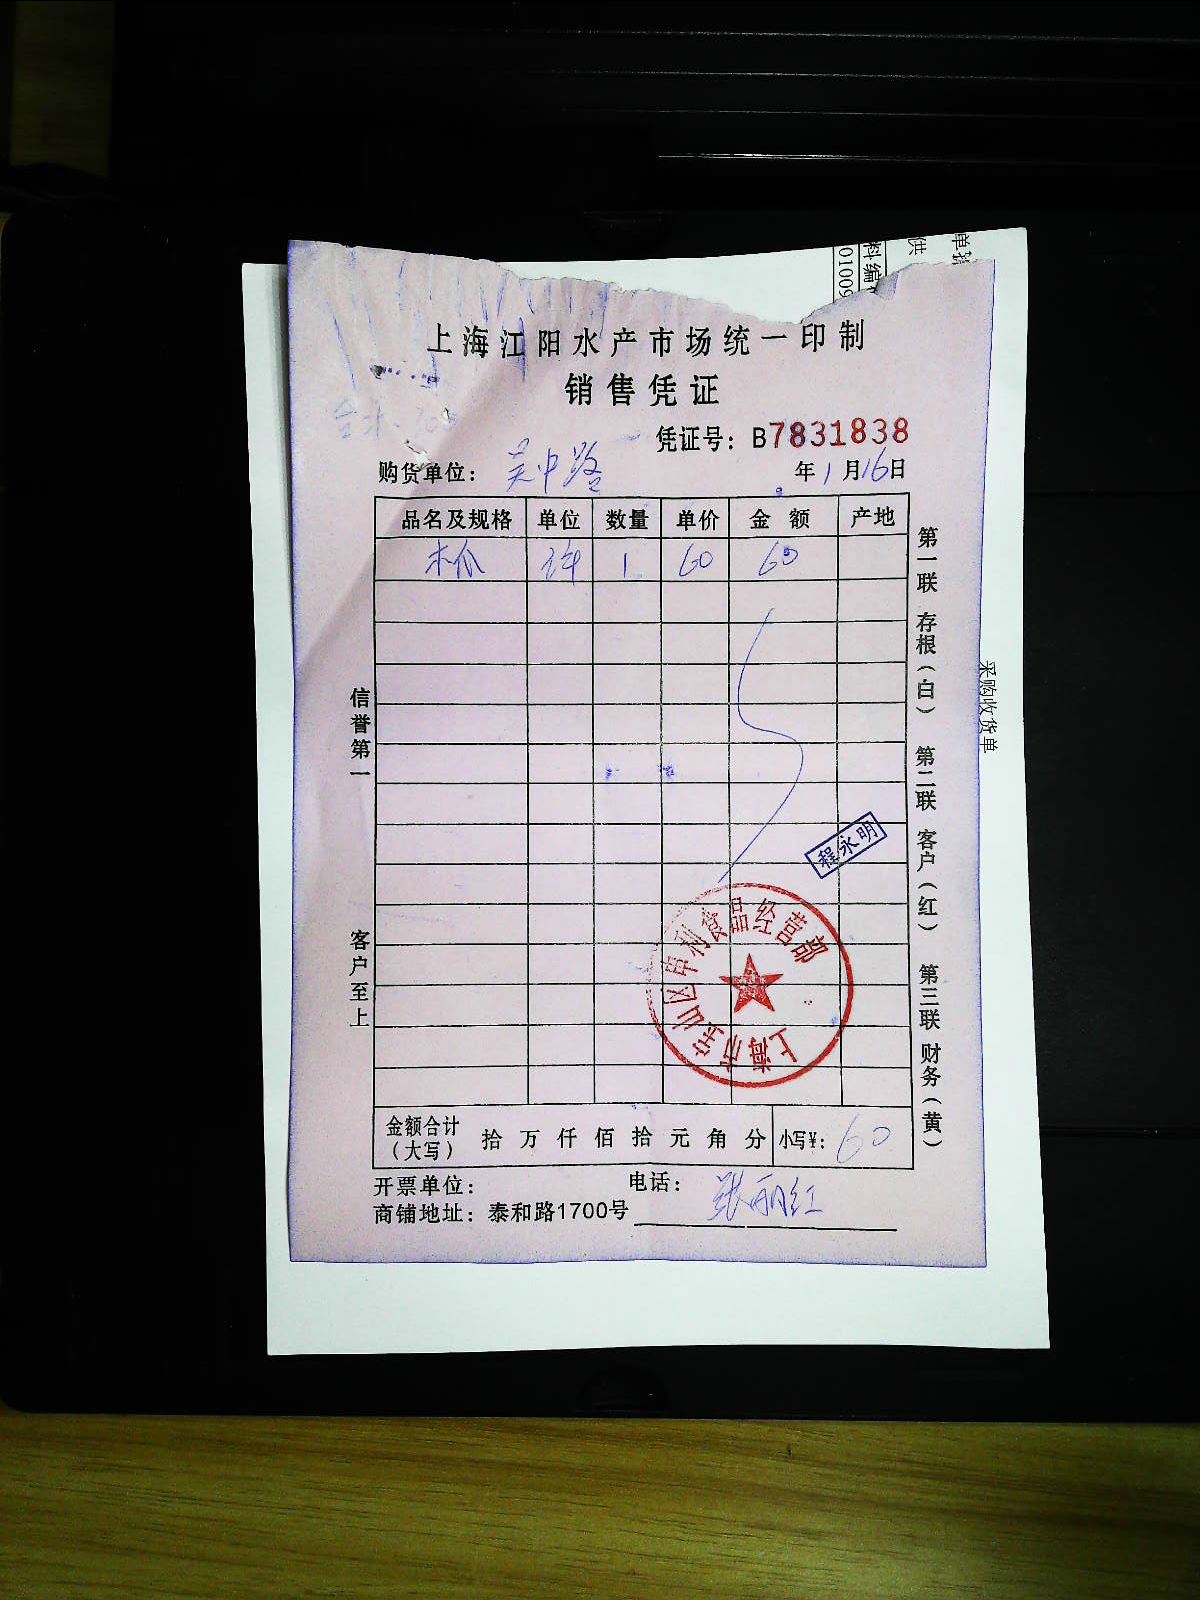 单据
供
料编
01009
上海江阳水产市场统一印制
销售凭证
凭证号：B7831838
购货单位：吴中路
年1月16日
品名及规格 单位 数量 单价 金额 产地
木瓜 件 1 60 60
第一联 存根（白） 第二联 客户（红） 第三联 财务（黄）
采购收货单
信誉第一
客户至上
程永明
上海市宝山区卓利食品经营部
金额合计（大写） 拾 万 仟 佰 拾 元 角 分 小写¥：60
开票单位： 电话：张丽红
商铺地址：泰和路1700号